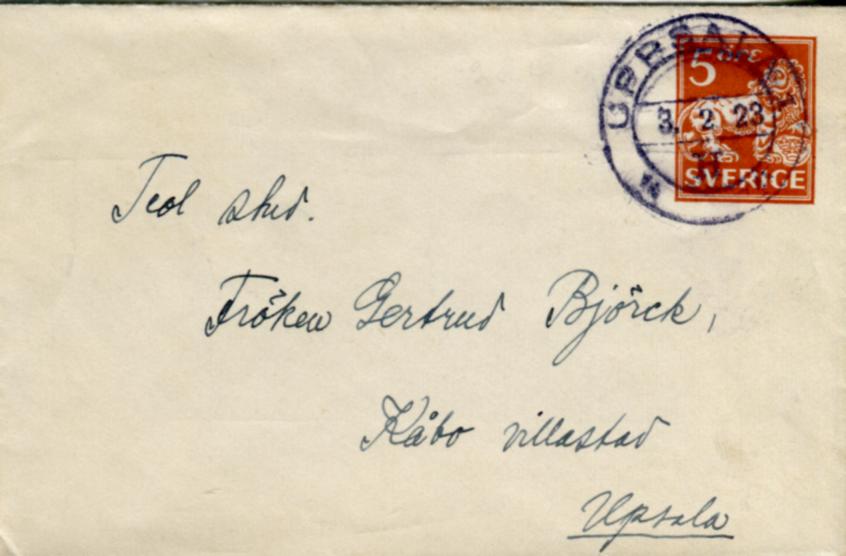 5 ÖRE
UPPSALA 1
3. 2. 23
SVERIGE
Teol stud.
Fröken Gertrud Björck,
Kåbo villastad
Upsala